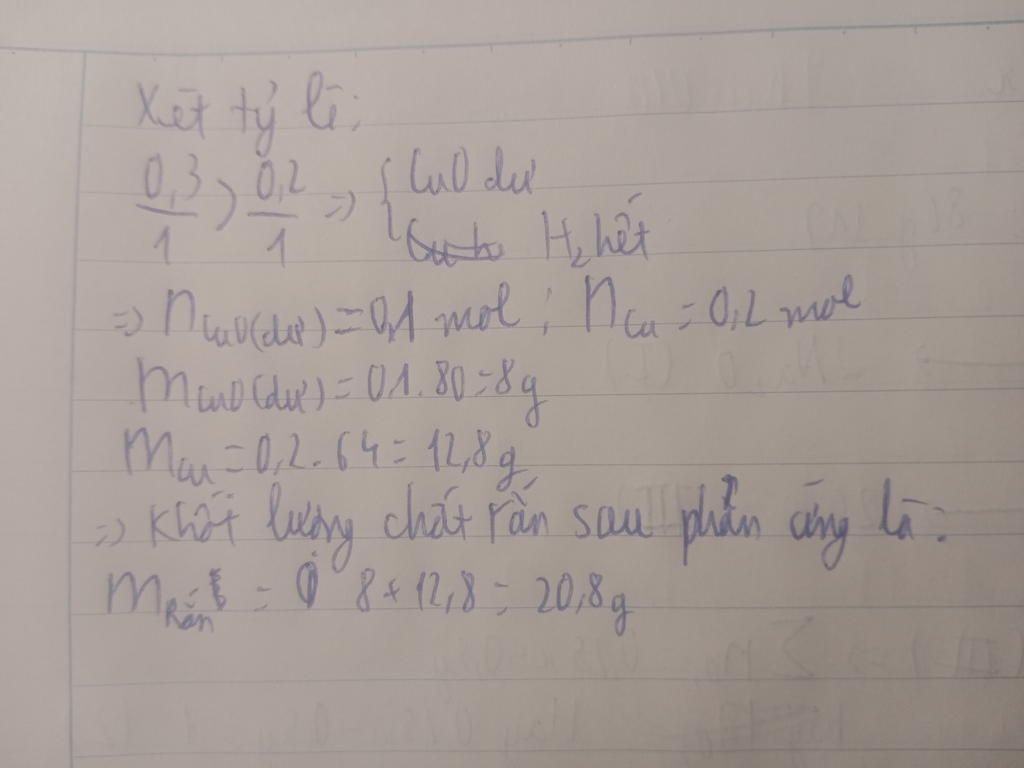 Xét tỷ lệ:
0,3/1 > 0,2/1 => { CuO dư
H₂ hết
=> n CuO(dư) = 0,1 mol ; n Cu = 0,2 mol
m CuO(dư) = 0,1 . 80 = 8g
m Cu = 0,2 . 64 = 12,8g
=> Khối lượng chất rắn sau phản ứng là:
m Rắn = 8 + 12,8 = 20,8g